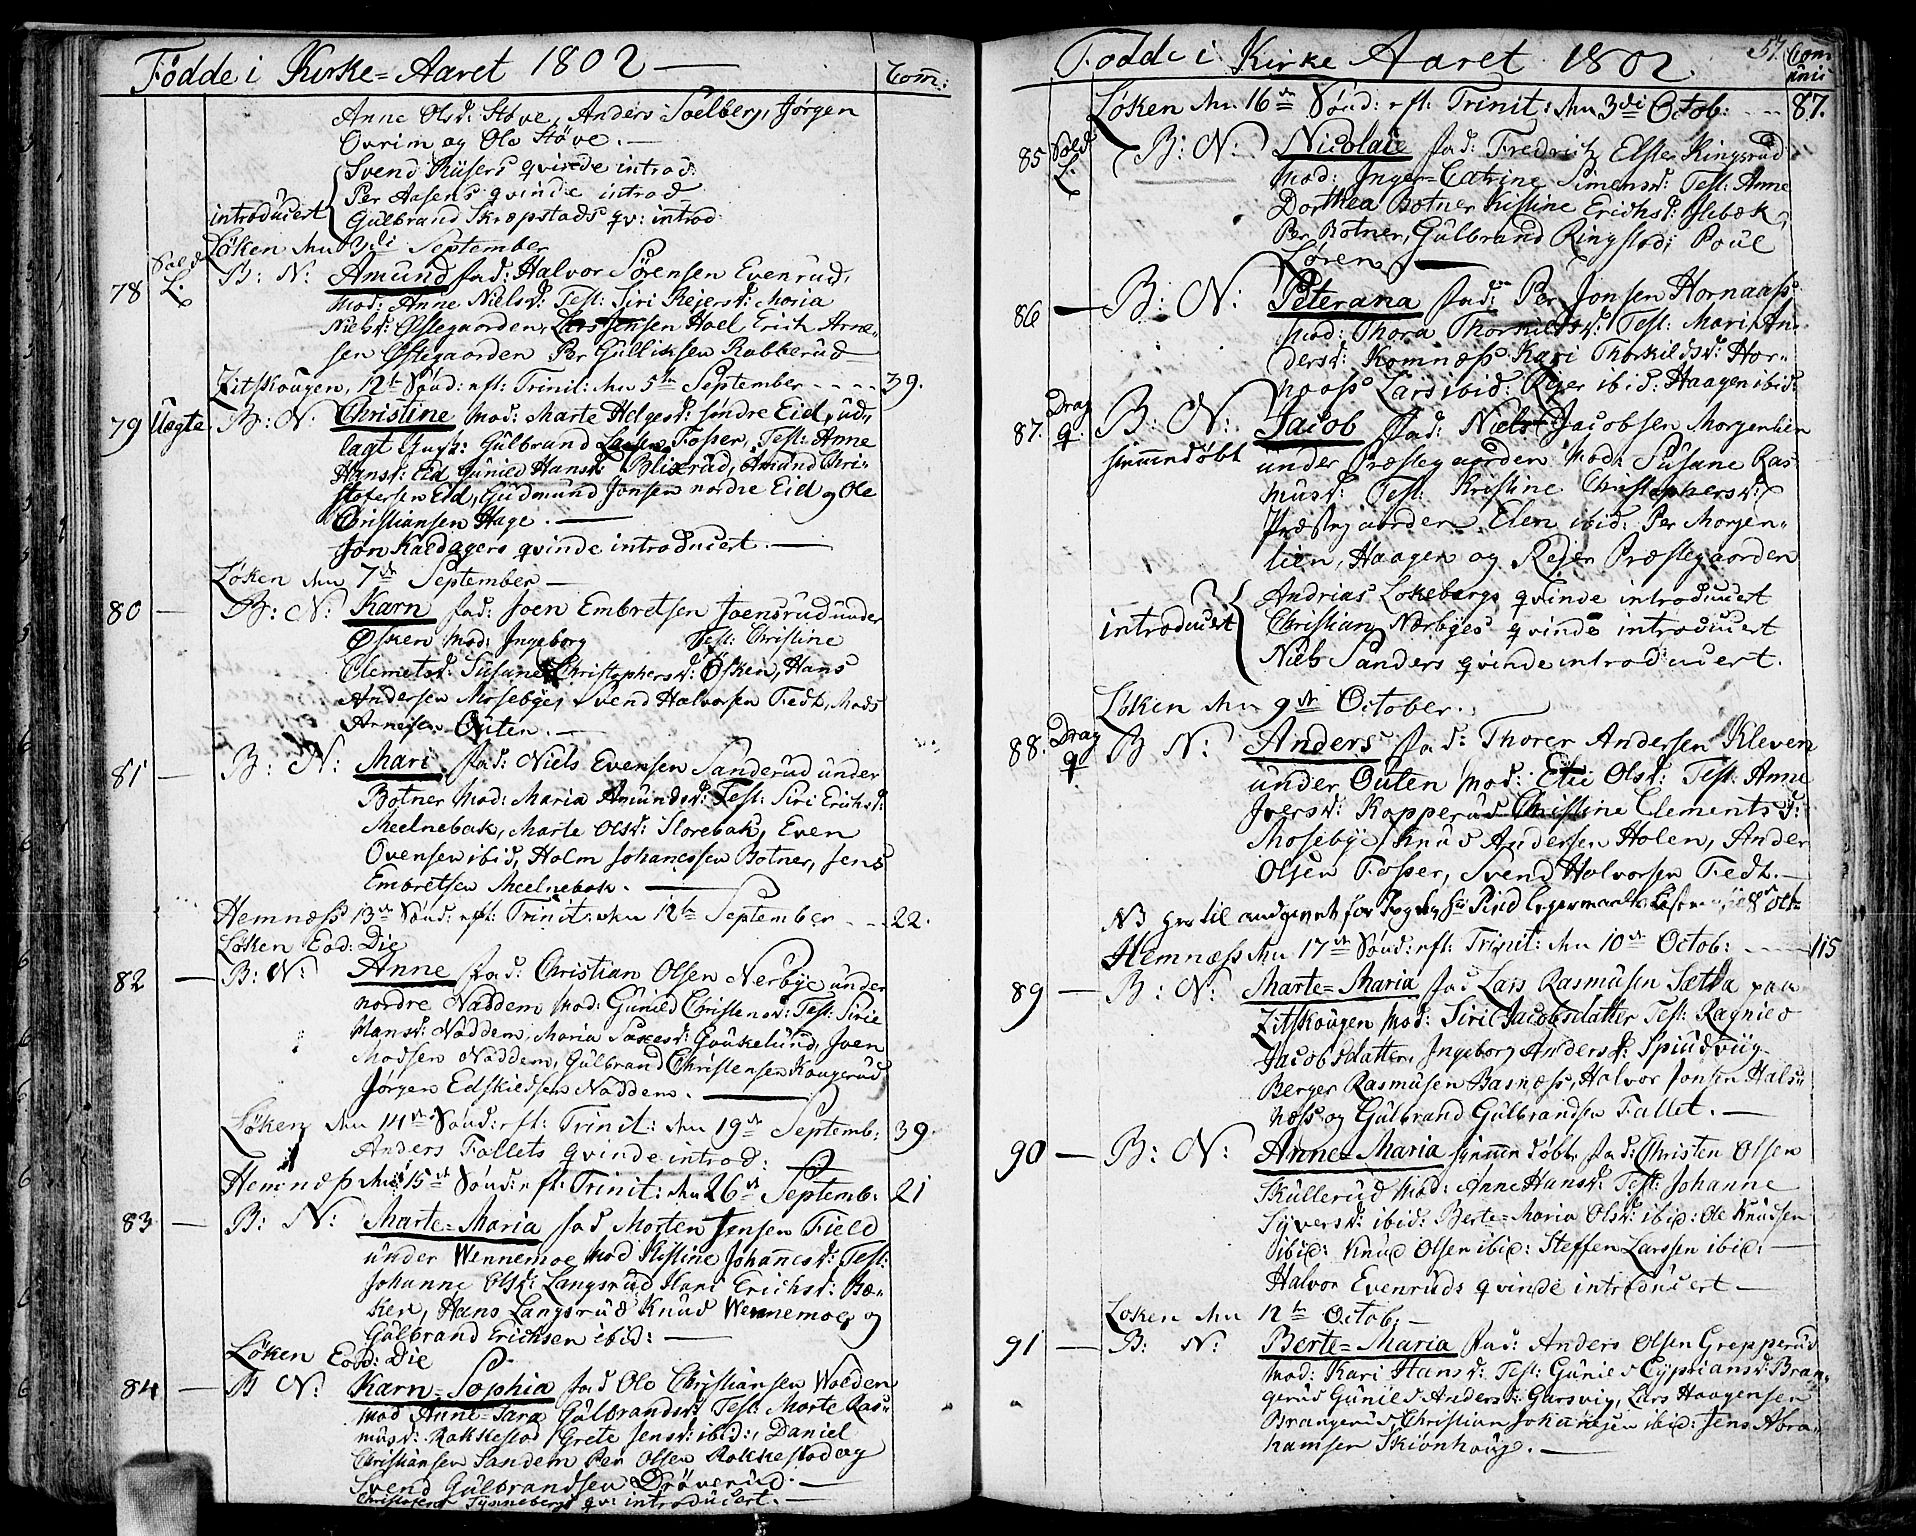 Fødde i Kirke=Aaret 1802 —
Com̄:
Anne Olsd: Støve, Anders Soelberg, Jørgen
Ovrim og Ole Støve. —
Svend Riisers qvinde introd:
Per Aasens qvinde introd
introducert
Gulbrand Skræpstads qv: introd
Løken den 3die September
78 Sold L. B: N: Amund fad: Halvor Sørensen Evenrud,
Mod: Anne Nielsd: Test: Siri Rejersd: Maria
Nielsd: Østegaarden, Lars Jensen Hoel, Erich Arne-
sen Østegaarden Per Gulliksen Rabberud
Zitskougen, 12te Sønd: eft: Trinit: den 5te September - - - - 39.
79 Uægte B: N: Christine Mod: Marte Helgesd: søndre Eid, ud-
lagt Gulbrand Fosser, Test: Anne
Hansd: Eid Gunild Hansd: Blixrud, Amund Chri-
stofersen Eid, Gudmund Jonsen nordre Eid og Ole
Christiansen Hage. —
Jon Kaldagers qvinde introducert. —
Løken den 7de September —
80 — B: N: Karn fad: Joen Embretsen Joensrud under
Øsken Mod: Ingeborg Test: Christine
Clemetsd: Susane Christophersd: Øsken, Hans
Andersen Mosebye, Svend Halvorsen Tedt, Mads
Arnesen Outen. —
81 — B: N: Mari fad: Niels Evensen Sanderud under
Botner Mod: Maria Amundsd: Test: Siri Erichsd:
Meelnebak, Marte Olsd: Storebak, Even
Ovensen ibid, Holm Johanesen Botner, Jens
Embretsen Meelnebak. —
Hemnæss 13de Sønd: eft: Trinit: den 12te September - - - 22.
Løken Eod: Die
82 — B: N: Anne fad: Christian Olsen Nerbye under
nordre Naddem Mod: Gunild Christensd: Test: Sirie
Hansd: Naddem, Maria Saxesd: Gaukelund, Joen
Madsen Naddem, Gulbrand Christensen Kougerud
Jørgen Edskieldsen Naddem. —
Løken den 14de Sønd: eft: Trinit: den 19de Septemb: 39.
Anders Fallets qvinde introd:
Hemnæss den 15de Sønd: eft: Trinit: den 26de Septemb: 21
83 — B: N: Marte=Maria fad Morten Jensen Field
under Wennemoe Mod Kistine Johanesd: Test:
Johanne Olsd: Langsrud Kari Erichsd: Bæ-
ken, Hans Langsrud Knud Wennemoe og
Gulbrand Erichsen ibid: —
Løken Eod: Die
84 — B N: Karn=Sophia fad Ole Christiansen Wolden
Mod Anne=Sara Gulbrandsd: Test: Marte Ras-
musd: Rakkestad, Grete Jensd: ibid:, Daniel
Christiansen Sandem Per Olsen Rakkestad og
Svend Gulbrandsen Drøverud. —
Christofers Tynnebergs qv: introducert. —
Fødde i Kirke Aaret 1802
57.
Com̄
unic
Løken den 16de Sønd: eft: Trinit: den 3die Octob: - - - 87.
85 Sold L. B: N: Nicolaie fad: Fredrich Elster Ringsrud
Mod: Inger=Catrine Simensd: Test: Anne
Dorthea Botner Kistine Erichsd: Islebæk,
Per Botner, Gulbrand Ringstad, Poul
Løren —
86 — B: N: Peterana fad: Per Jonsen Hornaass
Mod: Thora Thorkildsd: Test: Mari An-
dersd: Komnæss Kari Thorkildsd: Hor-
naass Lars ibid. Rejer ibid: Haagen ibid:
87. Drag q. B: N: Jacob fad: Niels Jacobsen Morgenlien
hjemmedøbt under Præstegaarden Mod: Susane Ras-
musd: Test: Kristine Christophersd:
Præstegaarden Elen ibid: Per Morgen-
lien, Haagen og Rejer Præstegaarden
Andrias Lokebergs qvinde introducert
introducert Christian Nærbyes qvinde introducert
Niels Sanders qvinde introducert.
Løken den 9de October.
88. Drag q B N: Anders fad: Thorer Andersen Kleven
under Outen Mod: Olsd: Test: Anne
Iversd: Kopperud Christine Clementsd:
Mosebye, Knud Andersen Holen, Anders
Olsen Fosser, Svend Halvorsen Tedt. —
NB
Hemnæss den 17de Sønd: eft: Trinit: den 10de Octob: - - - 115
89 — B: N: Marte=Maria fad Lars Rasmusen Sætra paa
Zitskougen Mod: Siri Jacobsdatter Test: Ragnild
Jacobsdatter, Ingeborg Andersd: Spiudvüg
Berger Rasmusen Basnæss, Halvor Jonsen Hals-
næss og Gulbrand Gulbrandsen Fallet. —
90 — B: N: Anne=Maria hjemmedøbt fad: Christen Olsen
Skullerud Mod: Anne Hansd: Test: Johanne
Syversd: ibid: Berte=Maria Olsd: ibid: Ole Knudsen
ibid: Knud Olsen ibid: Steffen Larssen ibid: —
Halvor Evenruds qvinde introducert —
Løken den 12te Octob: —
91 — B: N: Berte=Maria fad: Anders Olsen Grepperud
Mod: Kari Hansd: Test: Gunild Cypriansd: Bran-
gerud Gunild Andersd: Garsvig, Lars Haagensen
Brangerud, Christian Johanesen ibid: Jens Abra-
hamsen Skiønhaug. —